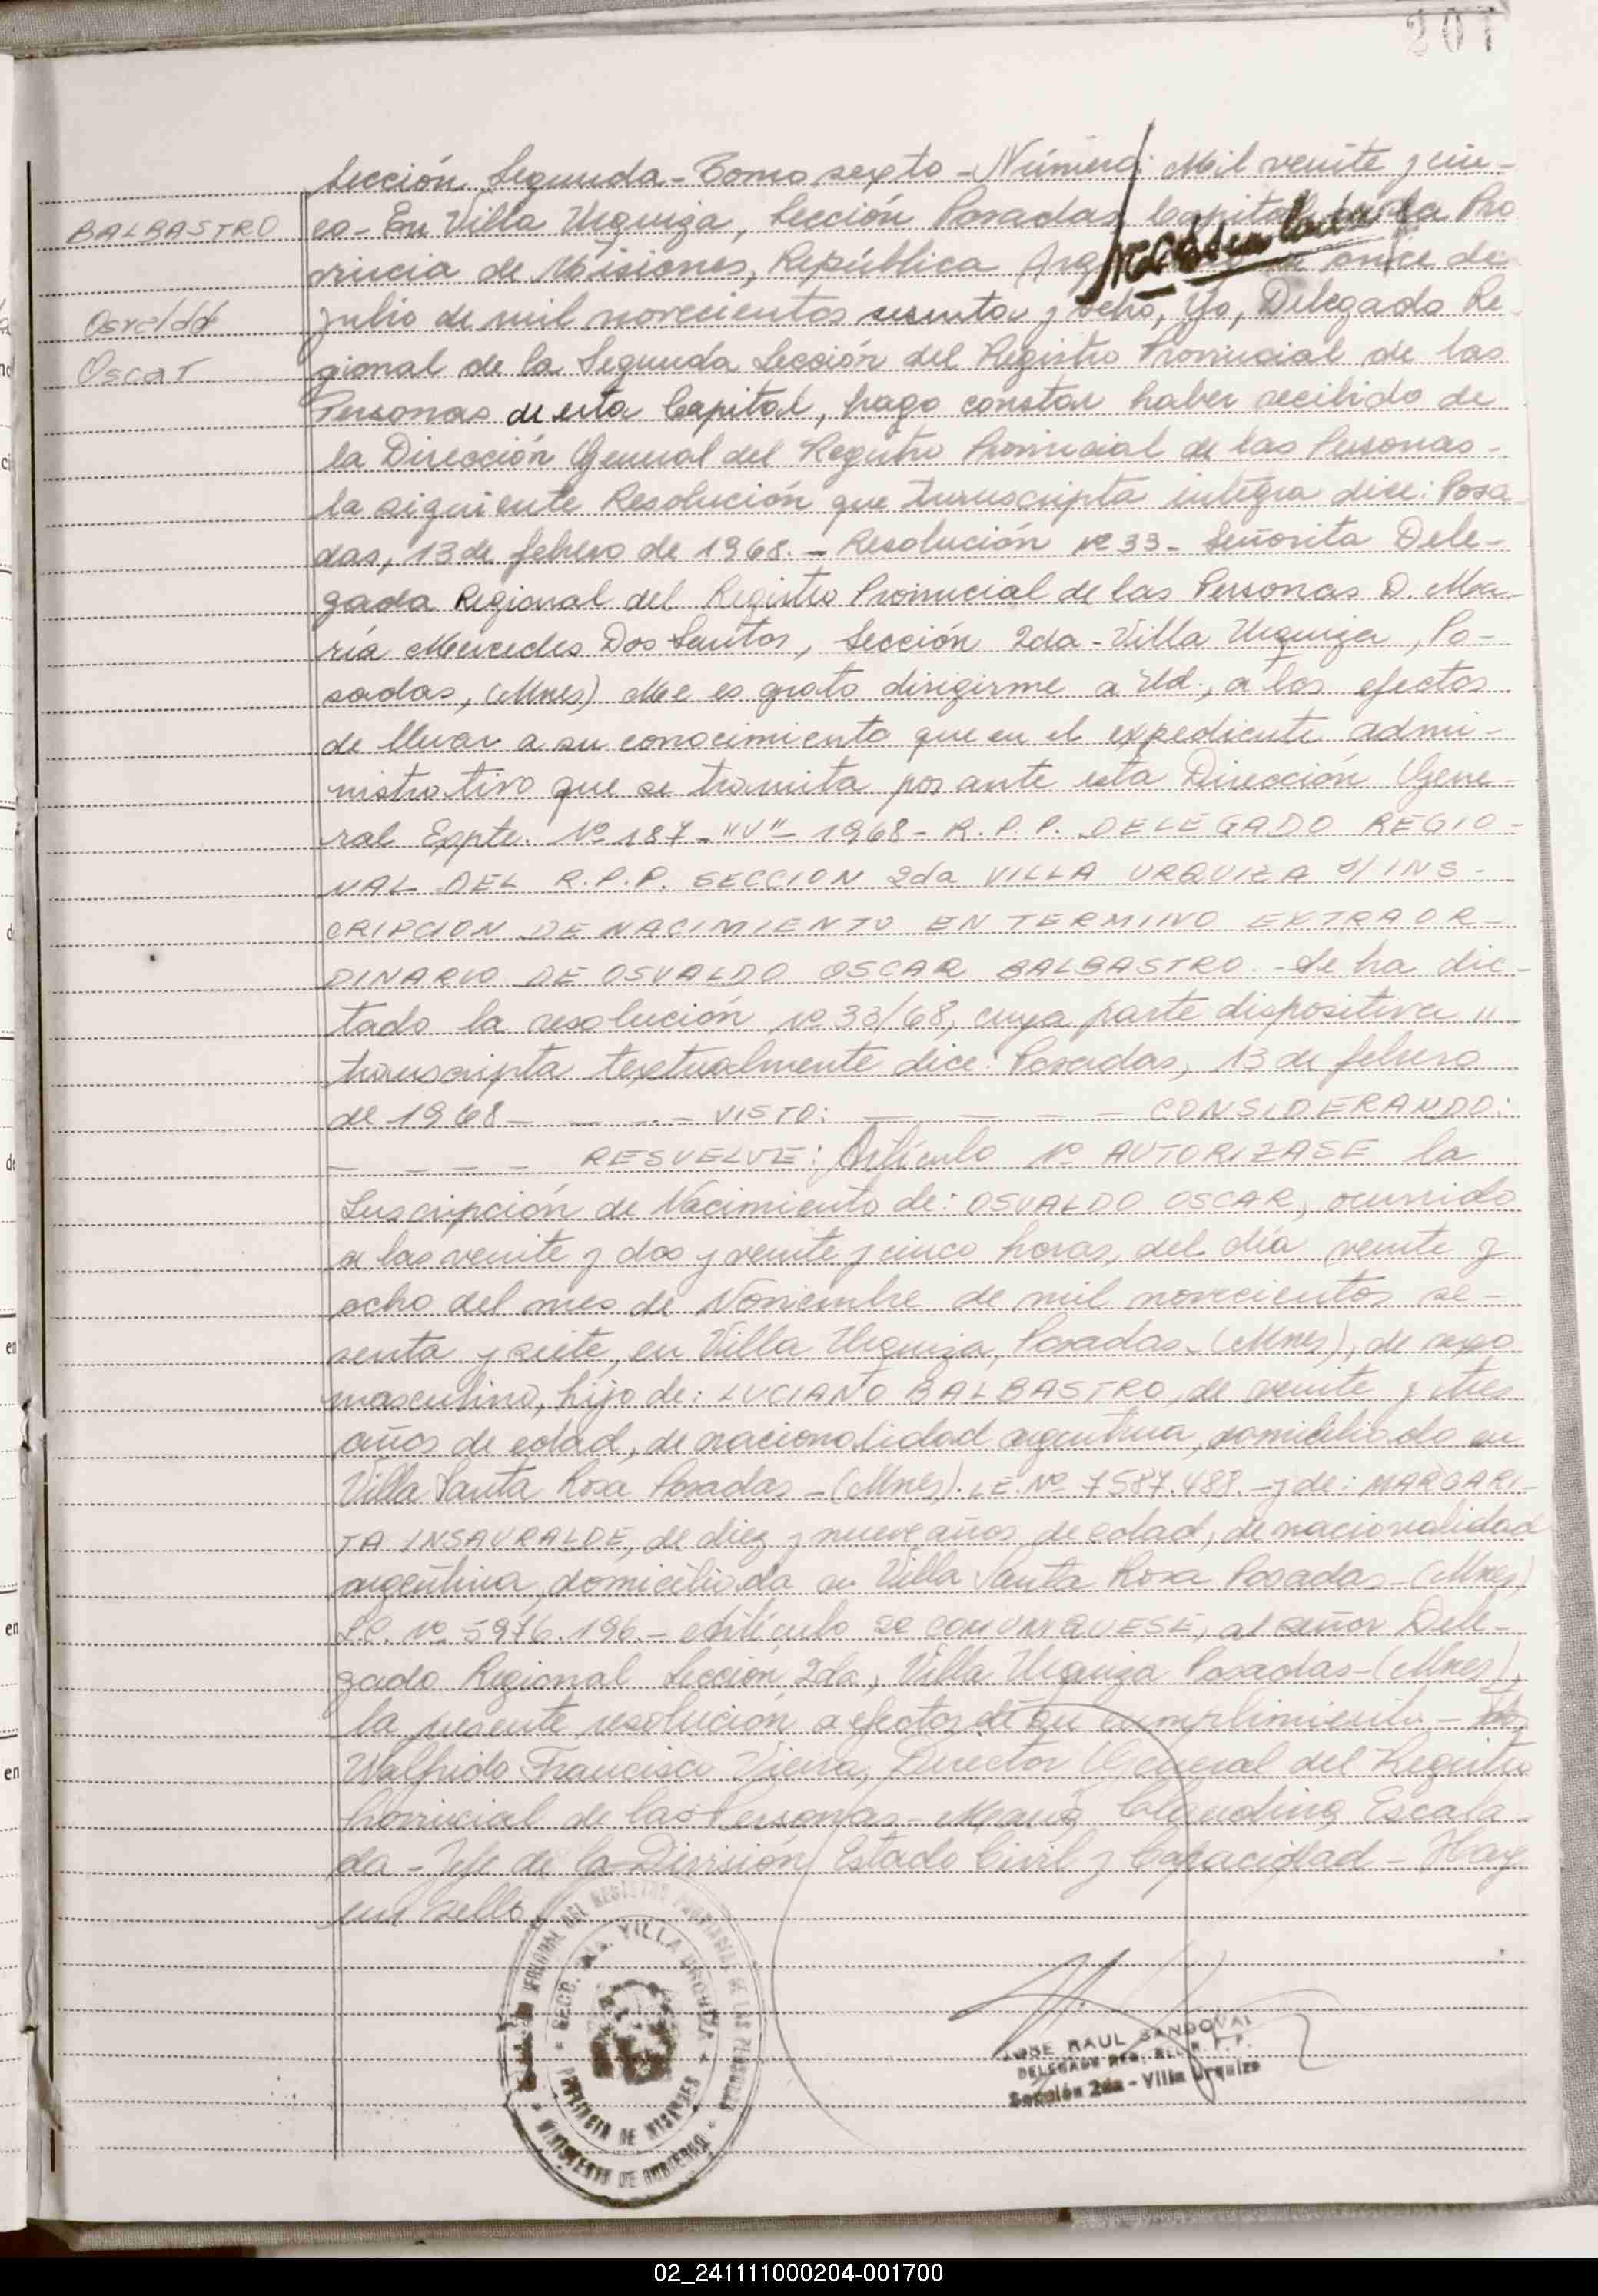 201
Sección Segunda - Tomo sexto - Número: Mil veinte y cin-
BALBASTRO
co - En Villa Urquiza, Sección Posadas, Capital de la Pro
vincia de Misiones, República once de
Osvaldo
julio de mil novecientos sesenta y ocho, Yo, Delegado Re-
Oscar
gional de la Segunda Sección del Registro Provincial de las
Personas de esta Capital, hago constar haber recibido de
la Dirección General del Registro Provincial de las Personas -
la siguiente Resolución que transcripta integra dice: Posa
das, 13 de febrero de 1968. - Resolución Nº 33 - Señorita Dele-
gada Regional del Registro Provincial de las Personas D. Ma-
ría Mercedes Dos Santos, Sección 2da - Villa Urquiza, Po-
sadas, (Mnes) Me es grato dirigirme a Ud., a los efectos
de llevar a su conocimiento que en el expediente admi-
nistrativo que se tramita por ante esta Dirección Gene-
ral Expte. Nº 187 - "V" - 1968 - R.P.P. DELEGADO REGIO-
NAL DEL R.P.P. SECCION 2da VILLA URQUIZA S/ INS-
CRIPCION DE NACIMIENTO EN TERMINO EXTRAOR-
DINARIO DE OSVALDO OSCAR BALBASTRO. - Se ha dic-
tado la resolución Nº 33/68, cuya parte dispositiva "
transcripta textualmente dice: Posadas, 13 de febrero
de 1968 - - - - VISTO: - - - - CONSIDERANDO:
- - - - RESUELVE: Artículo 1º AUTORIZASE la
Inscripción de Nacimiento de: OSVALDO OSCAR, ocurrido
a las veinte y dos y veinte y cinco horas, del día veinte y
ocho del mes de Noviembre de mil novecientos se-
senta y siete, en Villa Urquiza, Posadas - (Mnes), de sexo
masculino, hijo de: LUCIANO BALBASTRO, de veinte y tres
años de edad, de nacionalidad argentina, domiciliado en
Villa Santa Rosa Posadas - (Mnes). L.E. Nº 7587.488. - y de: MARGARI-
TA INSAURALDE, de diez y nueve años de edad, de nacionalidad
argentina, domiciliada en Villa Santa Rosa Posadas - (Mnes)
L.C. Nº 5976.196. - Artículo 2º COMUNIQUESE, al señor Dele-
gado Regional Sección 2da, Villa Urquiza Posadas - (Mnes),
la presente resolución a efectos de su cumplimiento -
Walfrido Francisco Vieira, Director General del Registro
Provincial de las Personas - María Claudina Escala-
da - Jefe de la División Estado Civil y Capacidad - Hay
un sello
REGIONAL DEL REGISTRO PROVINCIAL DE LAS PERSONAS
SECC. 2da. VILLA URQUIZA
PROVINCIA DE MISIONES
MINISTERIO DE GOBIERNO
JOSE RAUL SANDOVAL
DELEGADO REG. DEL R. P. P.
Sección 2da - Villa Urquiza
02_241111000204-001700